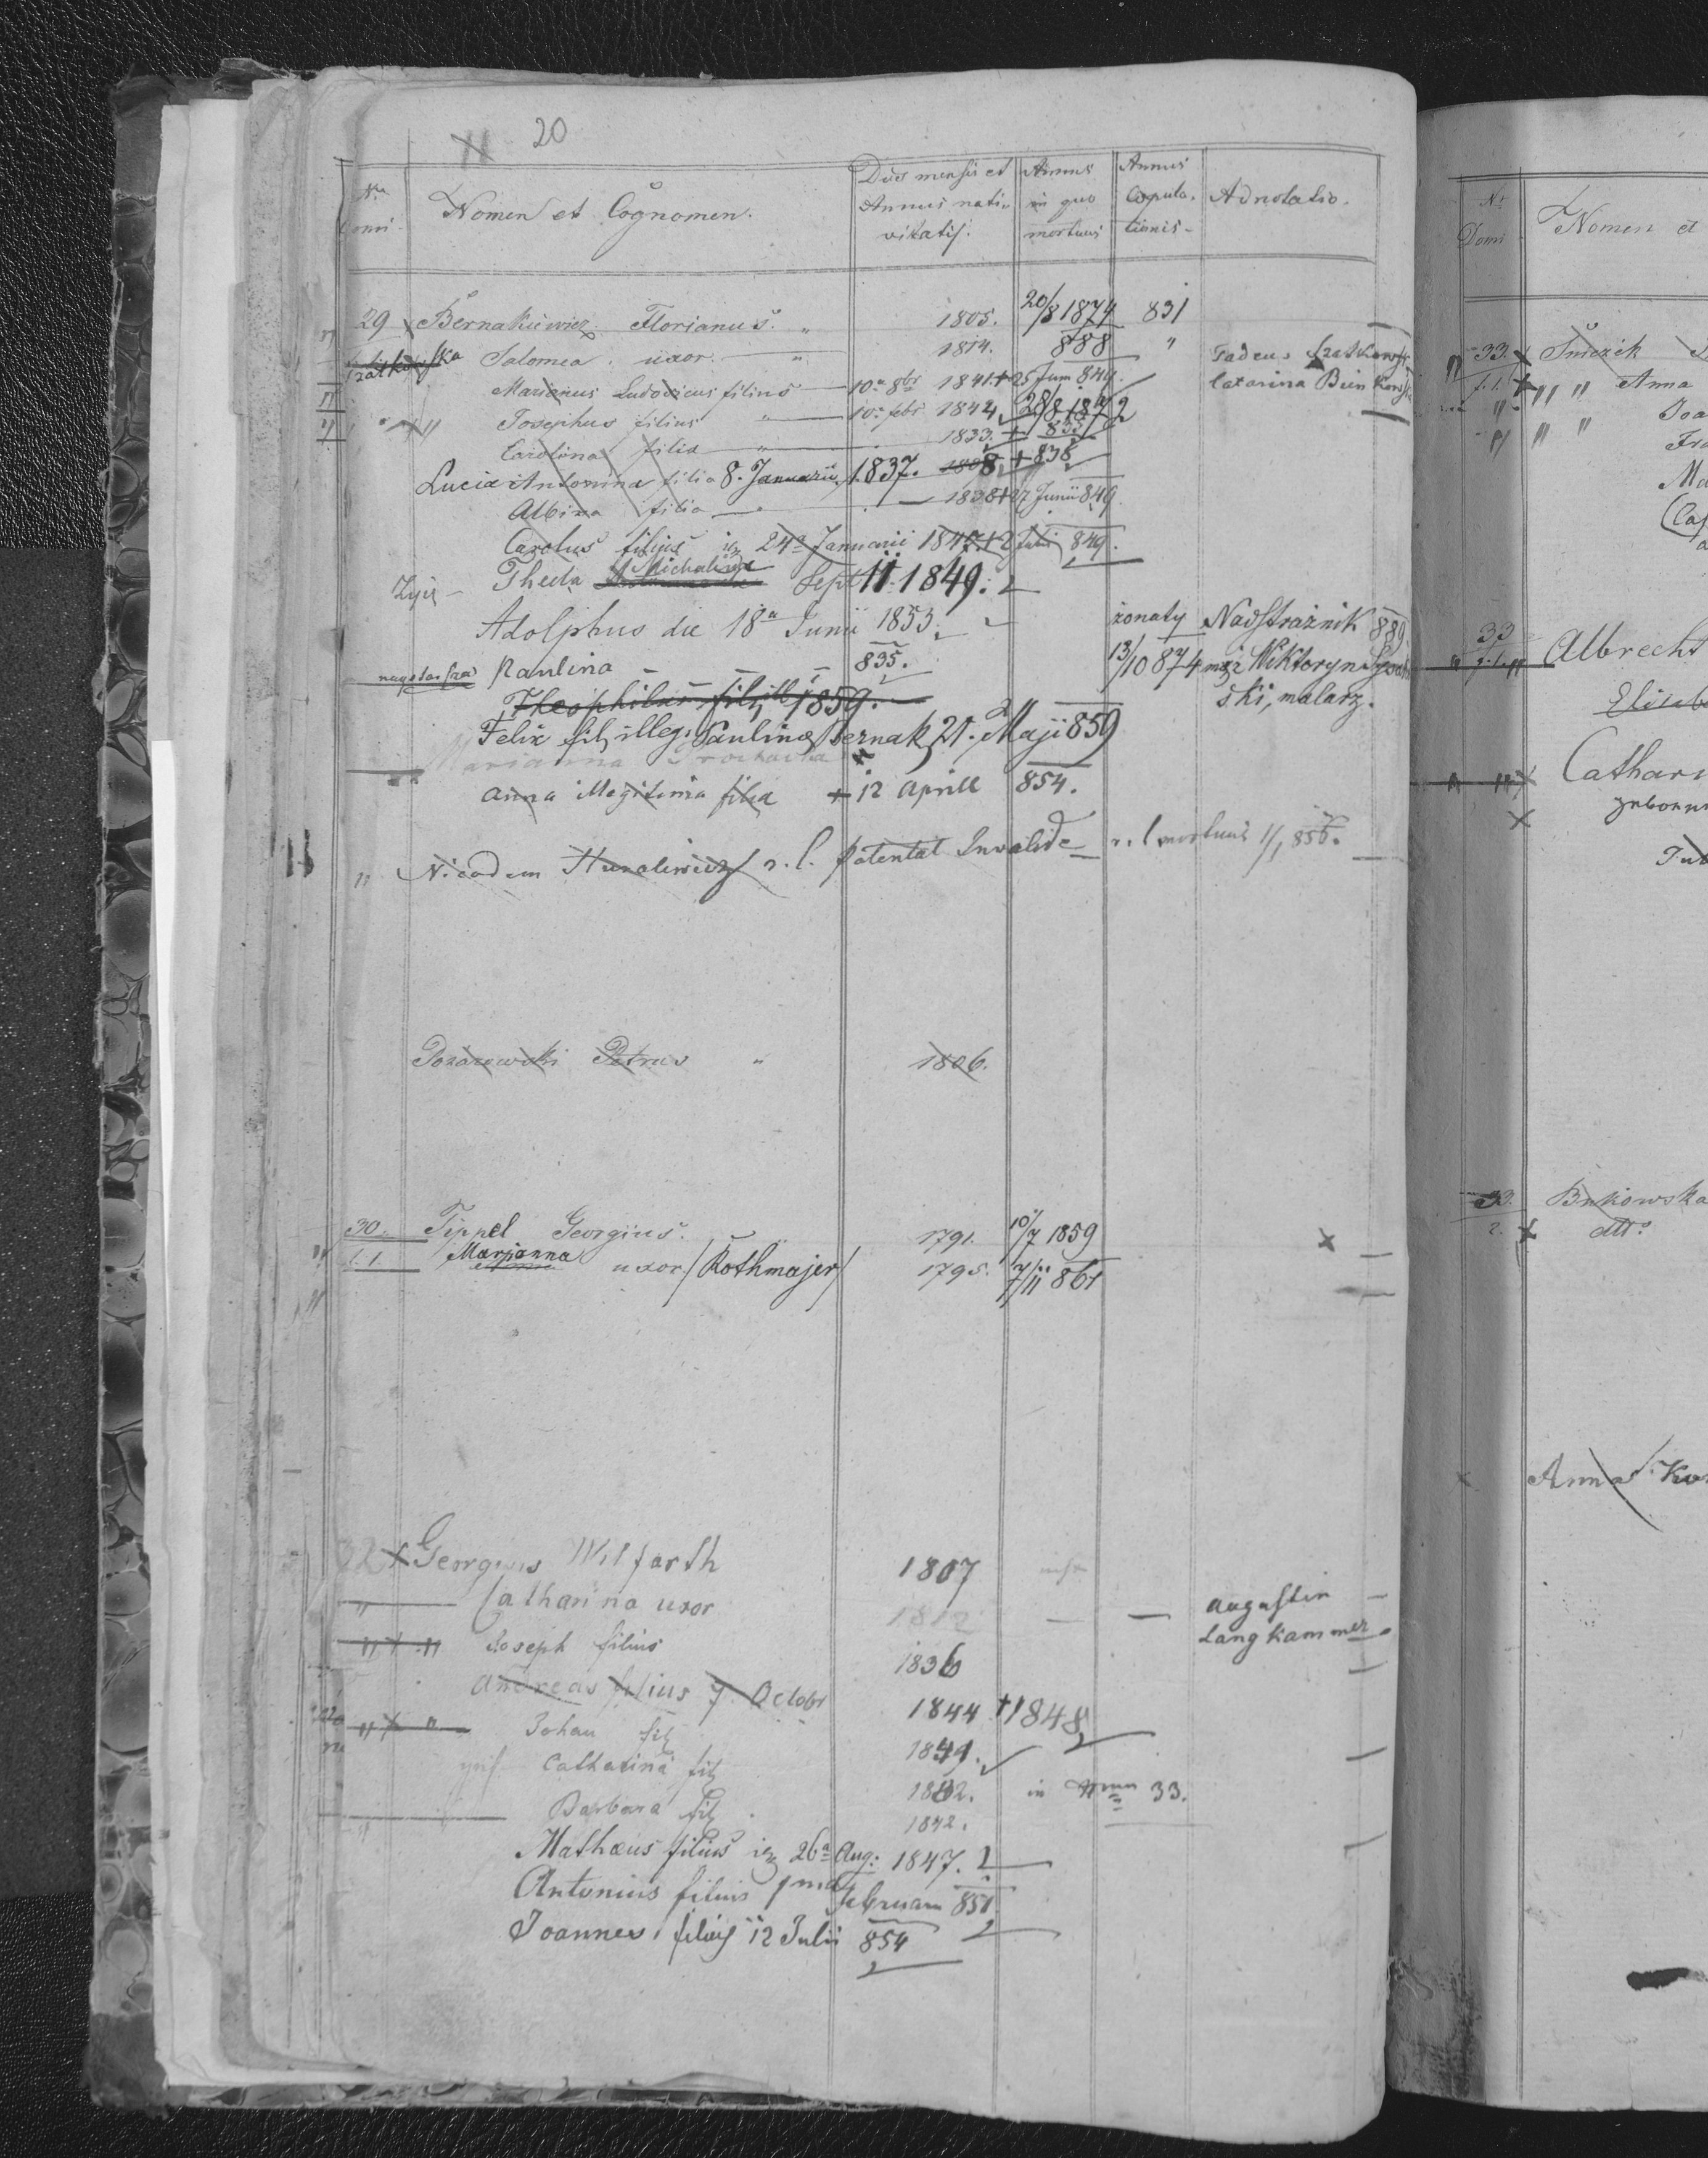 20
Nr. Domi
Nomen et Cognomen.
Dies mensis et Annus nativitatis.
Annus in quo mortuus
Annus Copulationis
Adnotatio.
29 Bernakiewicz Florianus. " 1805. 20/8 1874 831
Szatkowska Salomea uxor " 1814. 888 "
Tadeus Szatkowski
Catarina Bienkowska
Marianus Ludovicus filius 10a 8br 1841 + 25 Jum 844.
Josephus filius " 10a febr 1842 28/8 1872
Carolina filia " 1833. + 835
Lucia Antonina filia 8. Januarii 1837. + 838
Albina filia 1838 + 27 Junii 849.
Carolus filius 24a Januarii 1847 + 849.
Żyje - Thecla Michalina Sept 11 1849.
Adolphus die 18a Junii 1853. żonaty Nadstrażnik 889
Paulina 835. 13/10 874 mąż Wiktoryn
ski, malarz.
Theophilus fil ill 1859.
Felix fil illeg. Paulinae Bernak 21. Maji 859
Marianna
Anna illegitima filia + 12 Aprill 854.
" Nicodem r. l. patental Invalide r. l. mortuus 1/1 856.
Pozarewski Petrus " 1806.
30. Tippel Georgius. 1791. 10/7 1859
1.1 Marjanna uxor /Rothmajer/ 1795. 7/11 861
32 Georgius Wilfarth 1807
" Catharina uxor 1812 Augustin
Langkammer
" " Joseph filius 1836
Andreas filius 7. Octobr 1844 + 1848
" " Johan fil 1841.
Catharina fil in 33.
" Barbara fil 1842.
Mathaeus filius 26a Aug: 1847.
Antonius filius 1ma februarii 851
Joannes filius 12 Julii 854
Nr. Domi
Nomen et
33.
" " Anna
33
Albrecht
Cathari
33. Bukowska
2. dtto
Anna